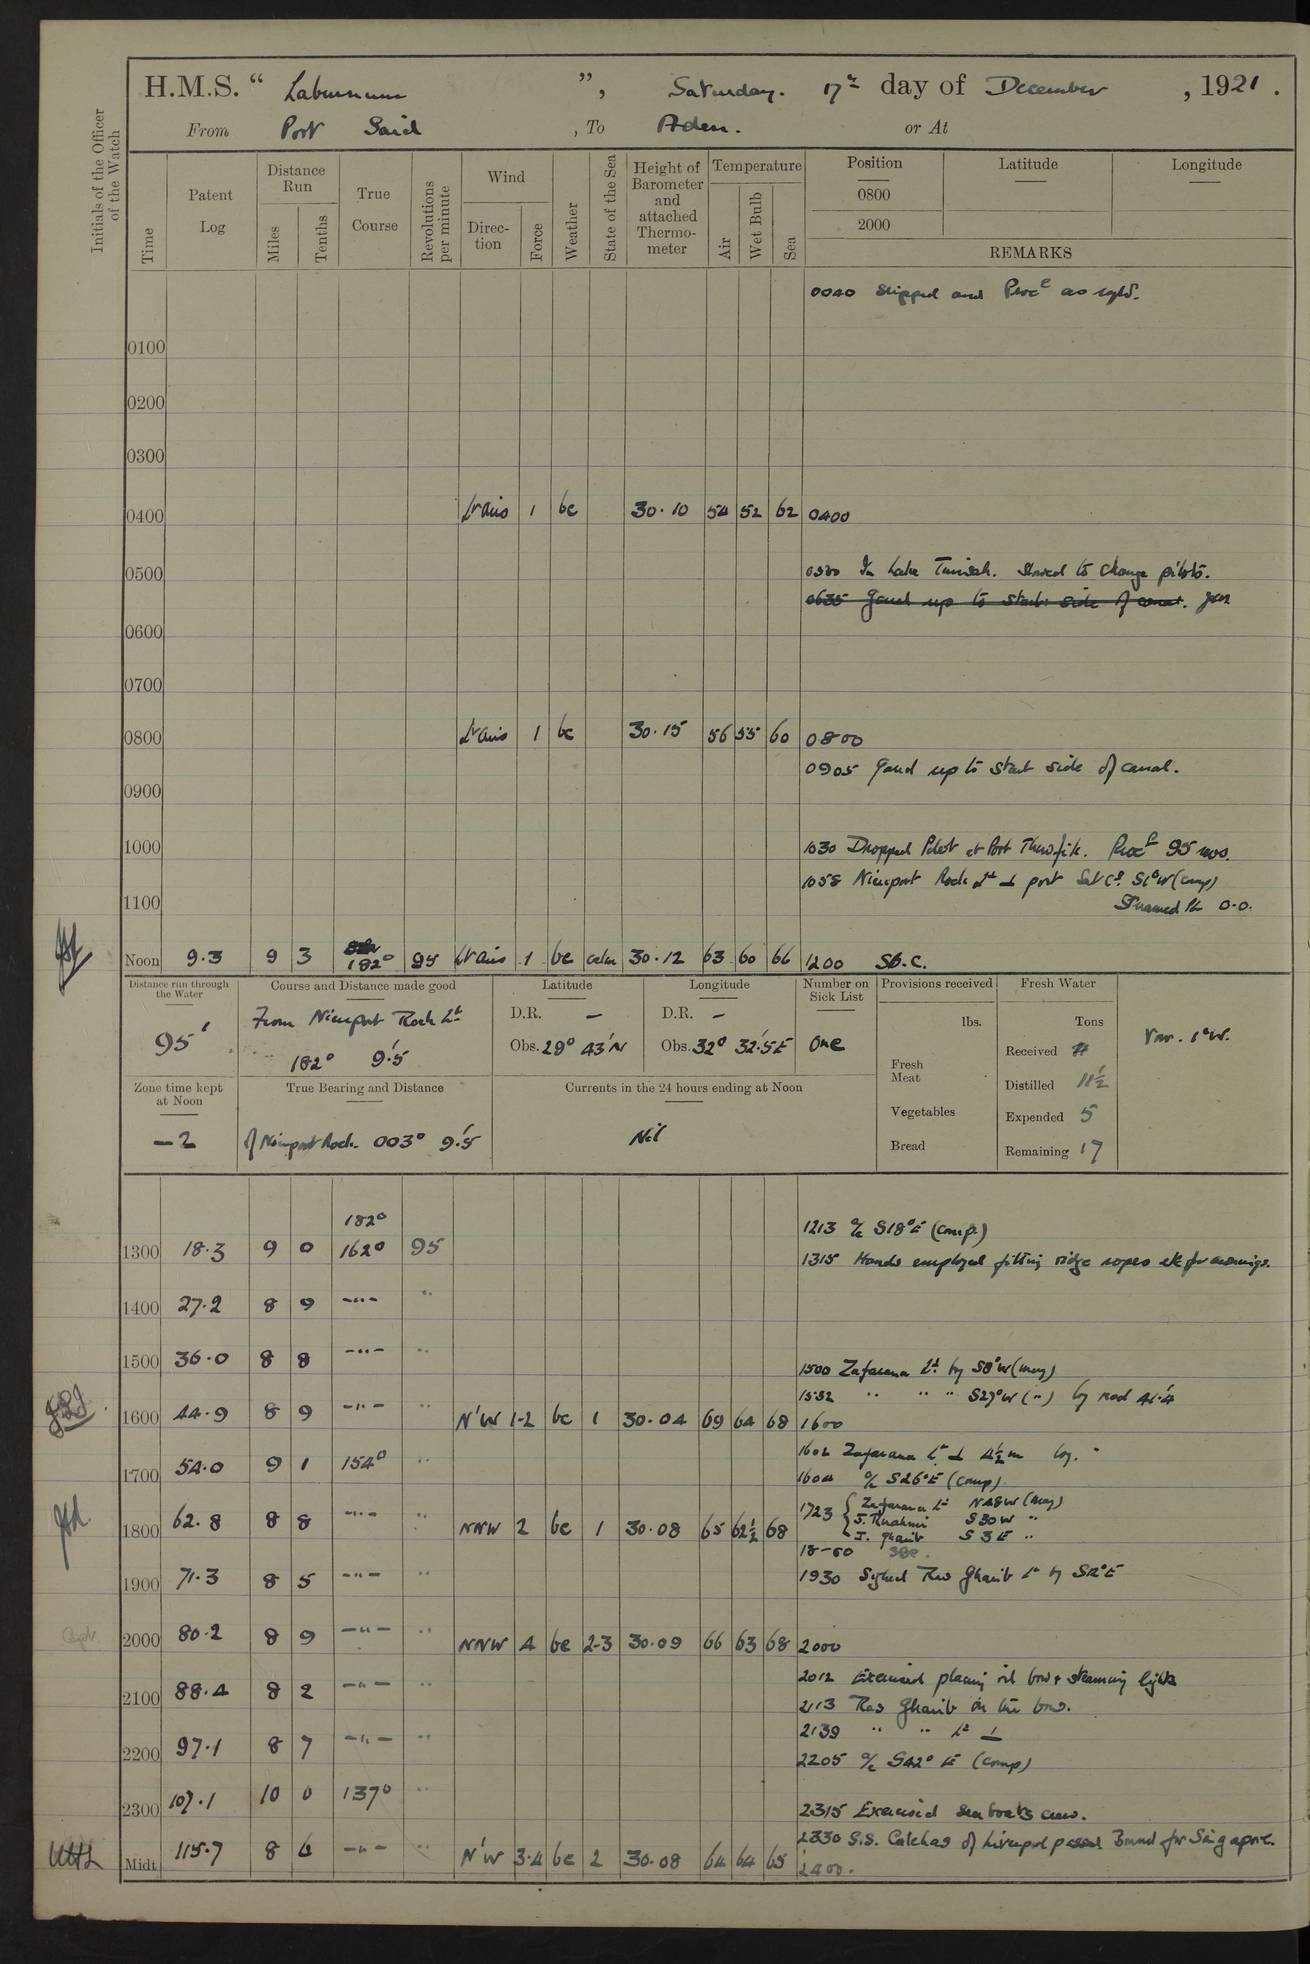 H.M.S. “ Laburnum ”, Saturday. 17th day of December, 1921.
From Port Said, To Aden. or At
Initials of the Officer of the Watch
Time
Patent Log
Distance Run
Miles
Tenths
True Course
Revolutions per minute
Wind
Direction
Force
Weather
State of the Sea
Height of Barometer and attached Thermometer
Temperature
Air
Wet Bulb
Sea
Position
Latitude
Longitude
0800
2000
REMARKS
0040 Slipped and Procd as reqd.
0100
0200
0300
0400 Lt airs 1 bc 30.10 54 52 62 0400
0500 0500 In Lake Timsah. Slowed to change pilots.
0635 Gared up to starb: side of canal.
0600
0700
0800 Lt airs 1 bc 30.15 56 55 60 0800
0905 Gared up to starb side of canal.
0900
1000 1030 Dropped Pilot at Port Thewfik. Procd 95 revs.
1058 Newport Rock Lt ⊥ port Set Co. S6°W (comp)
1100 Streamed PL 0.0.
Noon 9.3 9 3 182° 95 Lt airs 1 bc calm 30.12 63 60 66 1200 SB.C.
Distance run through the Water
95'
Course and Distance made good
From Newport Rock Lt
182° 9'.5
Latitude
D.R. —
Obs. 29° 43'N
Longitude
D.R. —
Obs. 32° 32'.5E
Number on Sick List
One
Provisions received
lbs.
Fresh Meat
Vegetables
Bread
Fresh Water
Tons
Received
Distilled 11½
Expended 5
Remaining 17
Var. 1°W.
Zone time kept at Noon
-2
True Bearing and Distance
of Newport Rock. 003° 9'.5
Currents in the 24 hours ending at Noon
Nil
182° 1213 a/c S18°E (comp.)
1300 18.3 9 0 162° 95
1315 Hands employed fitting ridge ropes etc for awnings.
1400 27.2 8 9 —"— "
1500 36.0 8 8 —"— "
1500 Zafarana Lt. by S8°W (mag)
1532 " " " S27°W (") by rad 41'.4
1600 44.9 8 9 —"— N'W 1-2 bc 1 30.04 69 64 68 1600
1602 Zafarana Lt ⊥ 4½m log.
1700 54.0 9 1 154° "
1604 a/c S26°E (comp)
1723 { Zafarana Lt N48W (mag)
S30W "
J. Gharib S 3 E "
1800 62.8 8 8 —"— " NNW 2 bc 1 30.08 65 62½ 68
1900 71.3 8 5 —"— "
1930 Sighted Ras Gharib Lt by S12°E
2000 80.2 8 9 —"— " NNW 4 bc 2-3 30.09 66 63 68 2000
2012 Exercised placing oil bow & steaming lights
2100 88.4 8 2 —"— "
2113 Ras Gharib on the bow.
2139 " " Lt ⊥
2200 97.1 8 7 —"— "
2205 a/c S42°E (comp)
2300 107.1 10 0 137° "
2315 Exercised sea boats crew.
2330 S.S. Calchas of Liverpool passed Bound for Singapore.
Midt. 115.7 8 6 —"— " N'W 3-4 bc 2 30.08 64 64 65 2400.